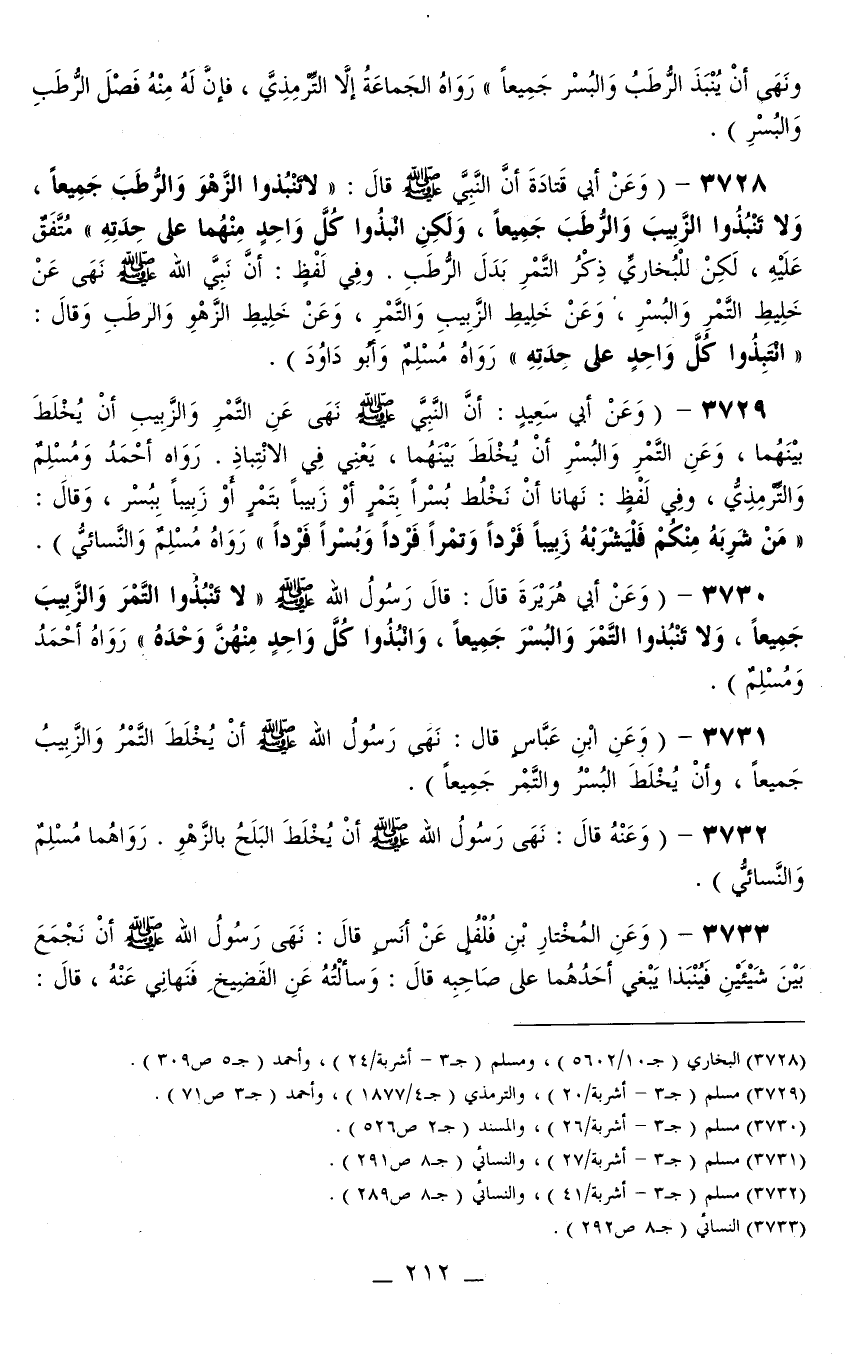 ونَهَى أنْ يُنْبَذَ الرُّطَبُ وَالبُسْر جَمِيعاً » رَوَاهُ الجَماعَةُ إلَّا التِّرْمِذِيَّ ، فإنَّ لَهُ مِنْهُ فَصْلَ الرُّطَبِ
وَالبُسْرِ ) .
٣٧٢٨ – ( وَعَنْ أبي قَتادَةَ أنَّ النَّبِيَّ ﷺ قالَ : « لاتَنْبُذوا الزَّهْوَ وَالرُّطَبَ جَمِيعاً ،
وَلا تَنْبُذُوا الزَّبِيبَ وَالرُّطَبَ جَمِيعاً ، وَلَكِنِ انْبذُوا كُلَّ وَاحِدٍ مِنْهُما على حِدَتِهِ » مُتَّفَقٌ
عَلَيْهِ ، لَكِنْ للْبُخاريِّ ذِكْرُ التَّمْرِ بَدَلَ الرُّطَبِ . وفِي لَفْظٍ : أنَّ نَبِيَّ الله ﷺ نَهَى عَنْ
خَلِيطِ التَّمْرِ وَالبُسْرِ ، وَعَنْ خَلِيطِ الزَّبِيبِ وَالتَّمْرِ ، وَعَنْ خَلِيطِ الزَّهْوِ وَالرطَبِ وَقالَ :
« انْتَبِذُوا كُلَّ وَاحِدٍ على حِدَتِهِ » رَوَاهُ مُسْلِمٌ وَأبُو دَاوُدَ ) .
٣٧٢٩ – ( وَعَنْ أبي سَعِيدٍ : أنَّ النَّبِيَّ ﷺ نَهَى عَنِ التَّمْرِ وَالزَّبِيبِ أنْ يُخْلَطَ
بَيْنَهُما ، وَعَنِ التَّمْرِ وَالبُسْرِ أنْ يُخْلَطَ بَيْنَهُما ، يَعْنِي فِي الانْتِباذِ . رَوَاه أحْمَدُ وَمُسْلِمٌ
وَالتِّرْمِذِيُّ ، وفِي لَفْظٍ : نَهانا أنْ نَخْلُط بُسْراً بِتَمْرٍ أوْ زَبِيباً بتَمْرٍ أَوْ زَبيباً بِبُسْر ، وَقالَ :
« مَنْ شَرِبَهُ مِنْكُمْ فَلْيَشْرَبْهُ زَبِيباً فَرْداً وَتمْراً فَرْداً وَبُسْراً فَرْداً » رَوَاهُ مُسْلِمٌ وَالنَّسائيُّ ) .
٣٧٣٠ – ( وَعَنْ أبي هُرَيْرَةَ قالَ : قالَ رَسُولُ الله ﷺ « لا تَنْبُذُوا التَّمْرَ وَالزَّبِيبَ
جَمِيعاً ، وَلا تَنْبُذوا التَّمْرَ وَالبُسْرَ جَمِيعاً ، وَانْبُذُوا كُلَّ وَاحِدٍ مِنْهُنَّ وَحْدَهُ » رَوَاهُ أحْمَدُ
وَمُسْلِمٌ ) .
٣٧٣١ – ( وَعَنِ ابْنِ عَبَّاسٍ قال : نَهَى رَسُولُ الله ﷺ أنْ يُخْلَطَ التَّمْرُ وَالزَّبِيبُ
جَميعاً ، وأنْ يُخْلَطَ البُسْرُ والتَّمْر جَمِيعاً ) .
٣٧٣٢ – ( وَعَنْهُ قالَ : نَهَى رَسُولُ الله ﷺ أنْ يُخْلَطَ البَلَحُ بالزَّهْوِ . رَوَاهُما مُسْلِمٌ
وَالنَّسائيُّ ) .
٣٧٣٣ – ( وَعَنِ المُخْتارِ بْنِ فُلْفُلٍ عَنْ أنَسٍ قالَ : نَهَى رَسُولُ الله ﷺ أنْ نَجْمَعَ
بَيْنَ شَيْئَيْنِ فَيُنْبَذا يَبْغي أحَدُهُما على صَاحِبِه قالَ : وَسألْتُهُ عَنِ الفَضِيخِ فَنَهانِي عَنْهُ ، قالَ :
(٣٧٢٨) البخاري ( جـ٥٦٠٢/١٠ ) ، ومسلم ( جـ٣ – أشربة/٢٤ ) ، وأحمد ( جـ٥ ص٣٠٩ ) .
(٣٧٢٩) مسلم ( جـ٣ – أشربة/٢٠ ) ، والترمذي ( جـ١٨٧٧/٤ ) ، وأحمد ( جـ٣ ص٧١ ) .
(٣٧٣٠) مسلم ( جـ٣ – أشربة/٢٦ ) ، والمسند ( جـ٢ ص٥٢٦ ) .
(٣٧٣١) مسلم ( جـ٣ – أشربة/٢٧ ) ، والنسائي ( جـ٨ ص٢٩١ ) .
(٣٧٣٢) مسلم ( جـ٣ – أشربة/٤١ ) ، والنسائي ( جـ٨ ص٢٨٩ ) .
(٣٧٣٣) النسائي ( جـ٨ ص٢٩٢ ) .
— ٢١٢ —